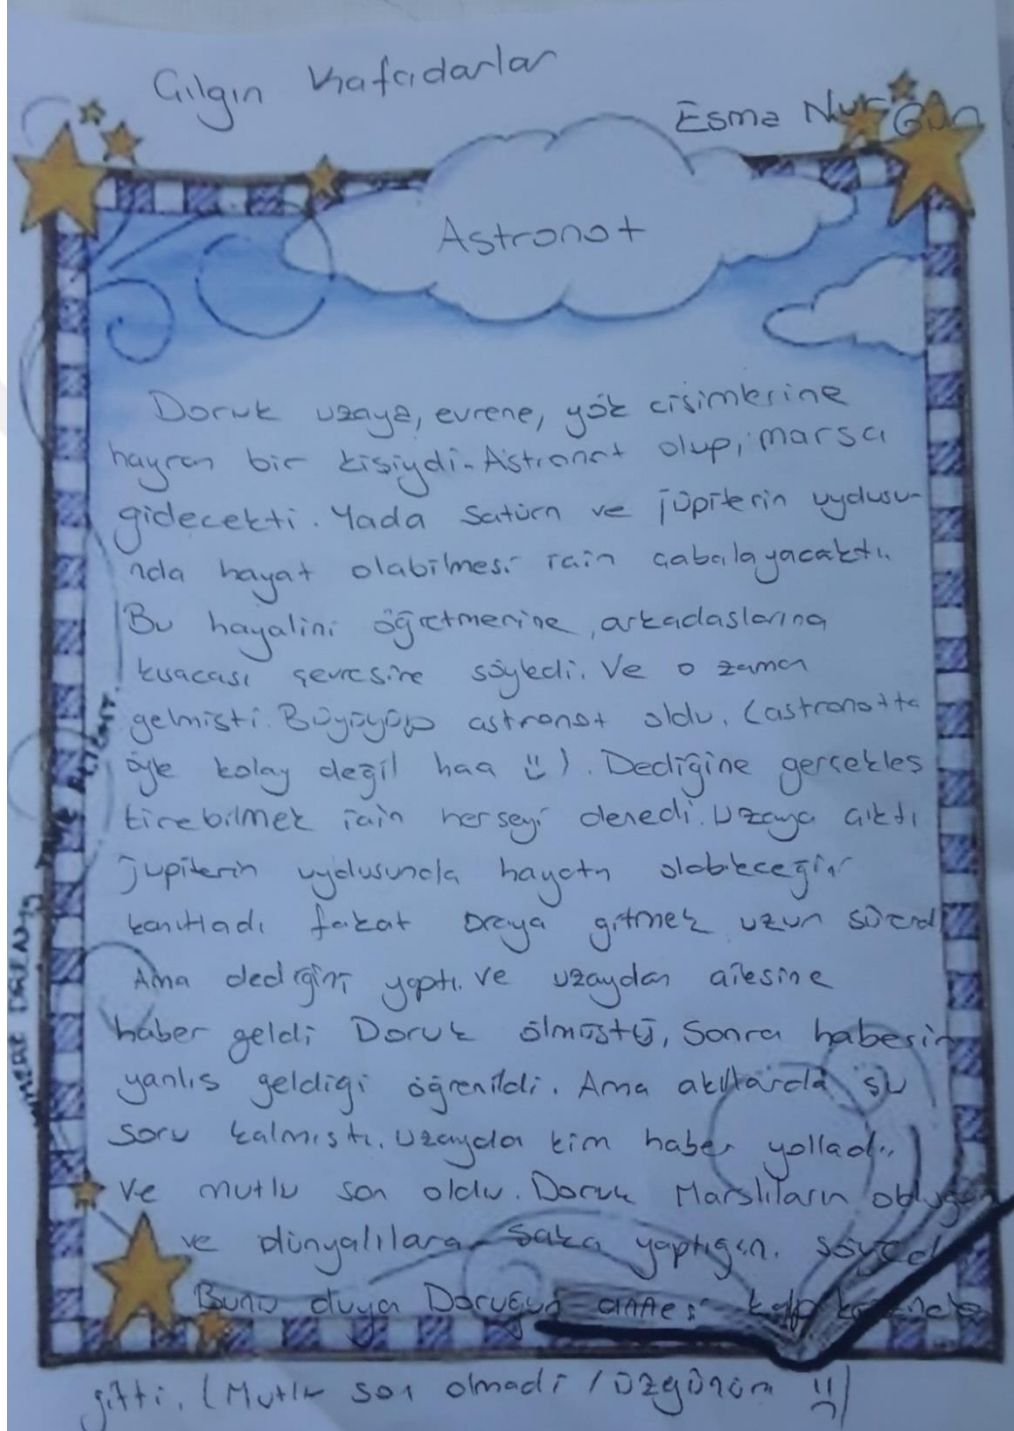 Çılgın Kafadarlar
Esma Nur Gün
Astronot
Doruk uzaya, evrene, yök cisimlerine
hayran bir kişiydi. Astronot olup, marsa
gidecekti. Yada Satürn ve jüpiterin uydusu-
nda hayat olabilmesi için çabalayacaktı.
Bu hayalini öğretmenine, arkadaslarına
kısacası çevresine söyledi. Ve o zaman
gelmişti. Büyüyüp astronot oldu. (astronotta
öyle kolay değil haa ü). Dediğine gerçekles
tirebilmek için herseyi denedi. Uzaya çıktı
jupiterin uydusunda hayatın olabileceğini
kanıtladı fakat oraya gitmek uzun sürdü
Ama dediğini yaptı. Ve uzaydan ailesine
haber geldi Doruk ölmüstü, Sonra haberin
yanlıs geldiği öğrenildi. Ama akıllarda şu
soru kalmıstı. Uzayda kim haber yolladı..
Ve mutlu son oldu. Doruk Marslıların olduğun
ve dünyalılara saka yaptığın. söyledi
Bunu duya Doruğun annesi kalp
gitti. (Mutlu son olmadı / üzgünüm ü)